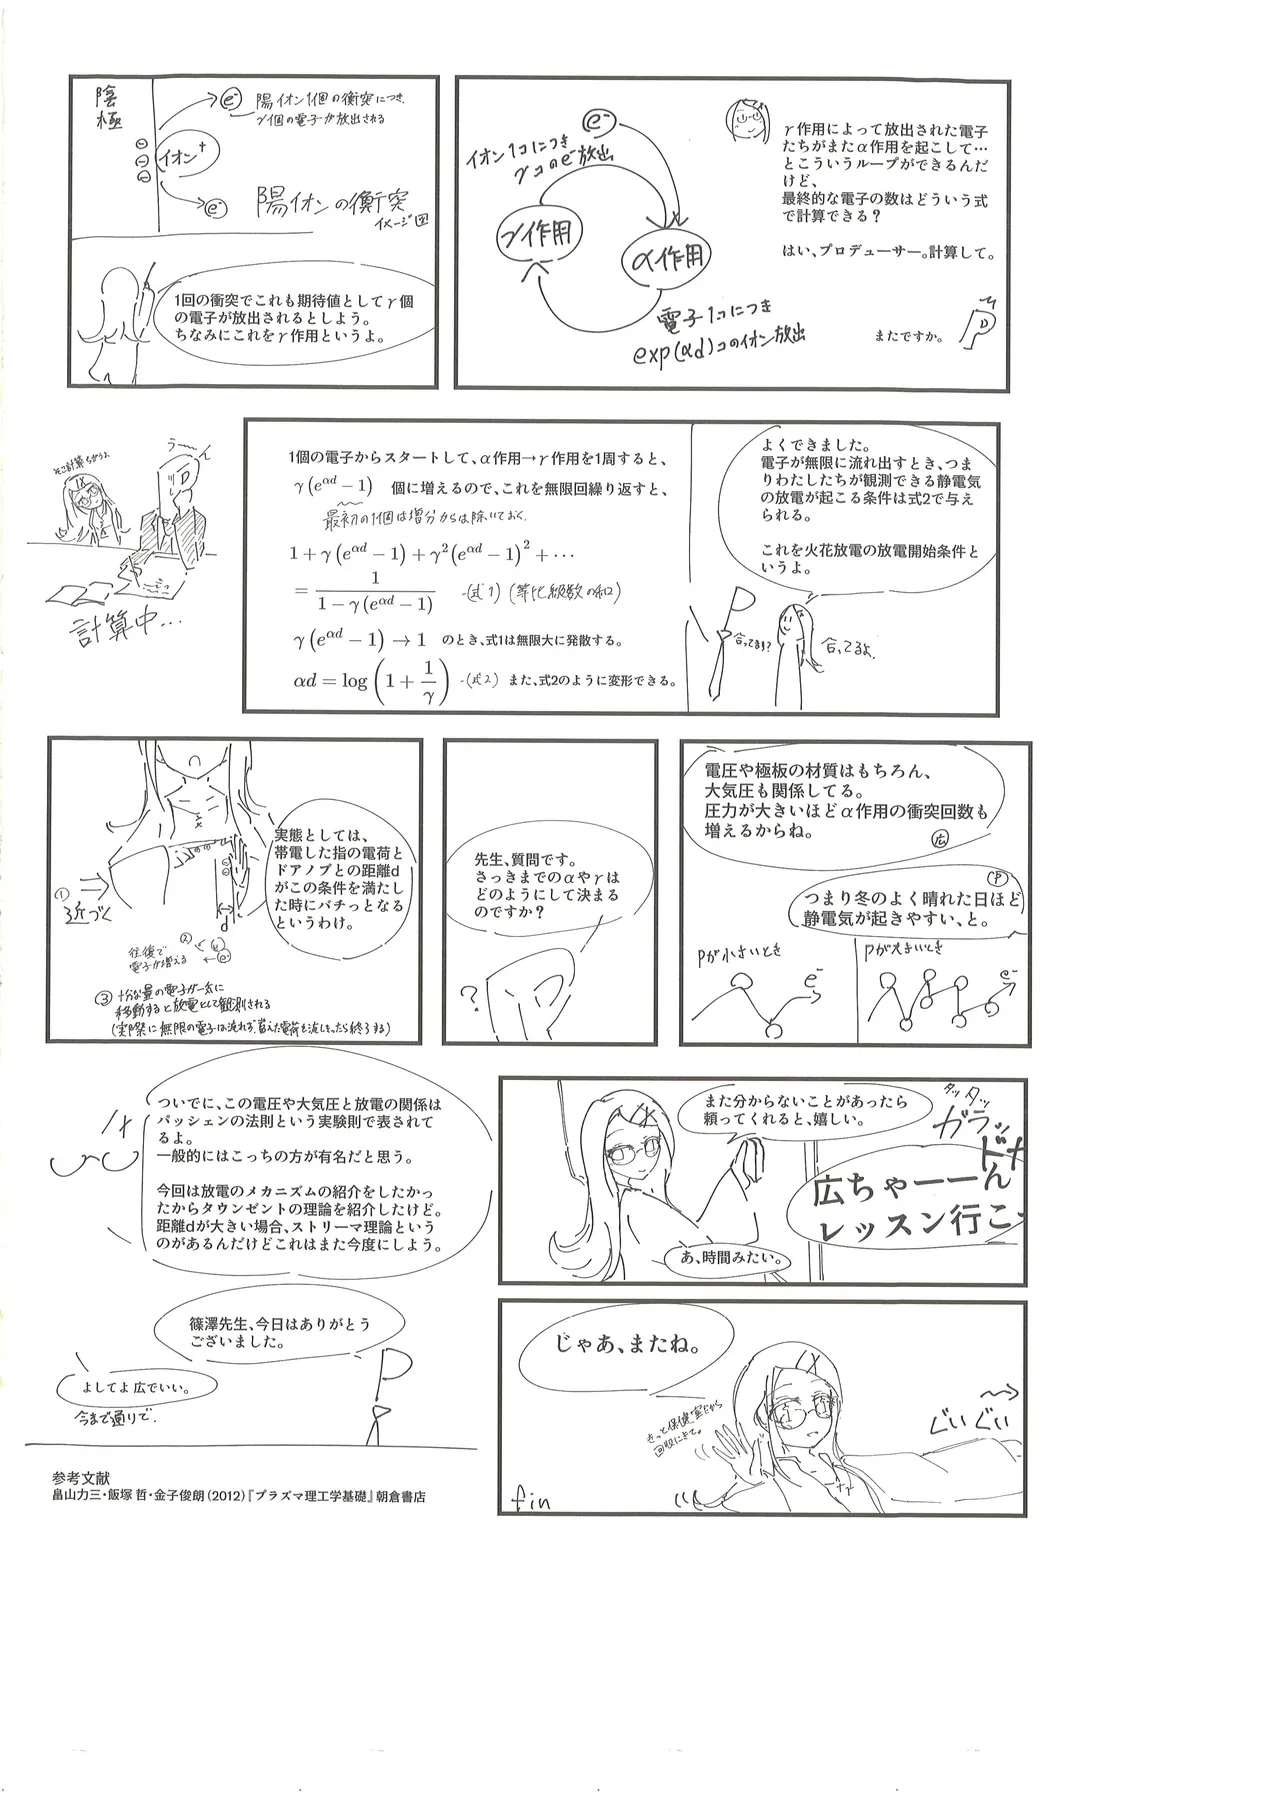 陰極
e⁻
陽イオン1個の衝突につき、
γ個の電子が放出される
イオン⁺
e⁻
陽イオンの衝突
イメージ図
1回の衝突でこれも期待値としてγ個
の電子が放出されるとしよう。
ちなみにこれをγ作用というよ。
e⁻
イオン1コにつき
γコのe⁻放出
γ作用
α作用
電子1コにつき
exp(αd)コのイオン放出
γ作用によって放出された電子
たちがまたα作用を起こして…
とこういうループができるんだ
けど、
最終的な電子の数はどういう式
で計算できる？
はい、プロデューサー。計算して。
P
またですか。
う〜ん
そこ計算ちがうよ
計算中…
1個の電子からスタートして、α作用→γ作用を1周すると、
γ(e^{αd} − 1) 個に増えるので、これを無限回繰り返すと、
最初の1個は増分からは除いておく.
1 + γ(e^{αd} − 1) + γ²(e^{αd} − 1)² + ···
= 1 / (1 − γ(e^{αd} − 1)) -(式1) (等比級数の和)
γ(e^{αd} − 1) → 1 のとき、式1は無限大に発散する。
αd = log(1 + 1/γ) -(式2) また、式2のように変形できる。
よくできました。
電子が無限に流れ出すとき、つま
りわたしたちが観測できる静電気
の放電が起こる条件は式2で与え
られる。
これを火花放電の放電開始条件と
いうよ。
P
合ってます?
合ってるよ.
実態としては、
帯電した指の電荷と
ドアノブとの距離d
がこの条件を満たし
た時にバチっとなる
というわけ。
①
近づく
d
②
往復で
電子が増える
e⁻
③ 十分な量の電子が一気に
移動すると放電として観測される
(実際に無限の電子は流れず、蓄えた電荷を流しきったら終了する)
先生、質問です。
さっきまでのαやγは
どのようにして決まる
のですか？
?
電圧や極板の材質はもちろん、
大気圧も関係してる。
圧力が大きいほどα作用の衝突回数も
増えるからね。
広
P
つまり冬のよく晴れた日ほど
静電気が起きやすい、と。
Pが小さいとき
e⁻
Pが大きいとき
e⁻
ついでに、この電圧や大気圧と放電の関係は
パッシェンの法則という実験則で表されて
るよ。
一般的にはこっちの方が有名だと思う。
今回は放電のメカニズムの紹介をしたかっ
たからタウンゼントの理論を紹介したけど。
距離dが大きい場合、ストリーマ理論という
のがあるんだけどこれはまた今度にしよう。
篠澤先生、今日はありがとう
ございました。
P
よしてよ 広でいい。
今まで通りで.
また分からないことがあったら
頼ってくれると、嬉しい。
タッタッ
ガラッ
広ちゃーーん
レッスン行こ
あ、時間みたい。
じゃあ、またね。
きっと保健室だから
回収にきて。
ぐいぐい
fin
参考文献
畠山力三・飯塚 哲・金子俊朗（2012）『プラズマ理工学基礎』朝倉書店